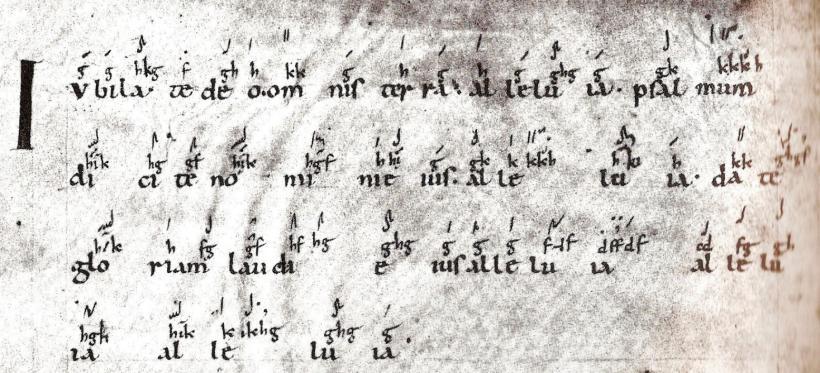 g g hkg f gh h kk g h g h g ghg g gk kkkh
IVbila· te dē o·om nis ter ra· al le lu ia· psal mum
hik hg gf hik hgf h hi g gk k kkh h kk
di ci te no mi nie ius· al le lu ia· da te
hik h fg gf hf hg ghg g g g dffdf cd fg gh
glo riam lau di e ius al le lu ia al le lu
hgh hik k ikhg ghg g
ia al le lu ia·